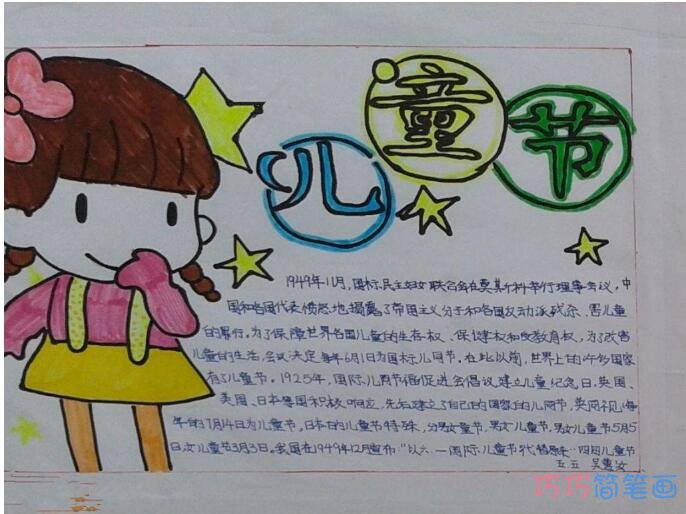 儿童节
1949年11月,国际民主妇女联合会在莫斯科举行理事会议,中
国和各国代表愤怒地揭露了帝国主义分子和各国反动派残杀、害儿童
的罪行。为了保障世界各国儿童的生存权、保健权和受教育权,为了改善
儿童的生活,会议决定每年6月1日为国际儿同节。在此以前,世界上的许多国家
有了儿童节。1925年,国际儿同节福促进会倡议建立儿童纪念日,英国、
美国、日本等国积极响应,先后建立了自己的国家的儿同节,英
年的7月14日为儿童节,日本的儿童节特殊,分男女童节,男女儿童节,男女儿童节5月5
日,女儿童节3月3日。我国在1949年12月宣布:“以六.一国际儿童节代替 四四儿童节
五.五 吴
巧巧简笔画